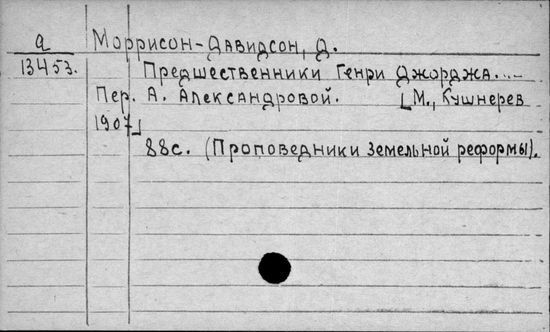 а Моррисон-Давидсон, Д.
13453. Предшественники Генри Джорджа...-
Пер. А. Александровой. [М., Кушнерев
1907]
88с. (Проповедники земельной реформы).